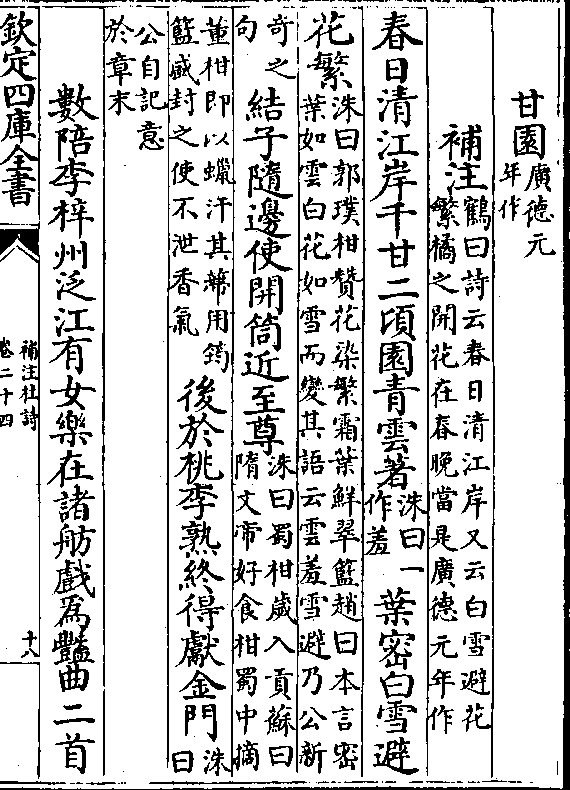 甘園廣德元
年作
補注鶴曰詩云春日清江岸又云白雪避花
繁橘之開花在春晚當是廣德元年作
春日清江岸千甘二頃園青雲著洙曰一
作羞
葉密白雪避
花繁洙曰郭璞柑贊花染繁霜葉鮮翠籃趙曰本言密
葉如雲白花如雪而變其語云雲羞雪避乃公新
奇之
句
結子隨邊使開筒近至尊洙曰蜀柑歲入貢蘇曰
隋文帝好食柑蜀中摘
黃柑即以蠟汗其蔕用筠
籃盛封之使不泄香氣
後於桃李熟終得獻金門洙
曰
公自記意
於章末
數陪李梓州泛江有女樂在諸舫戲為豔曲二首
欽定四庫全書
補注杜詩
卷二十四
十八